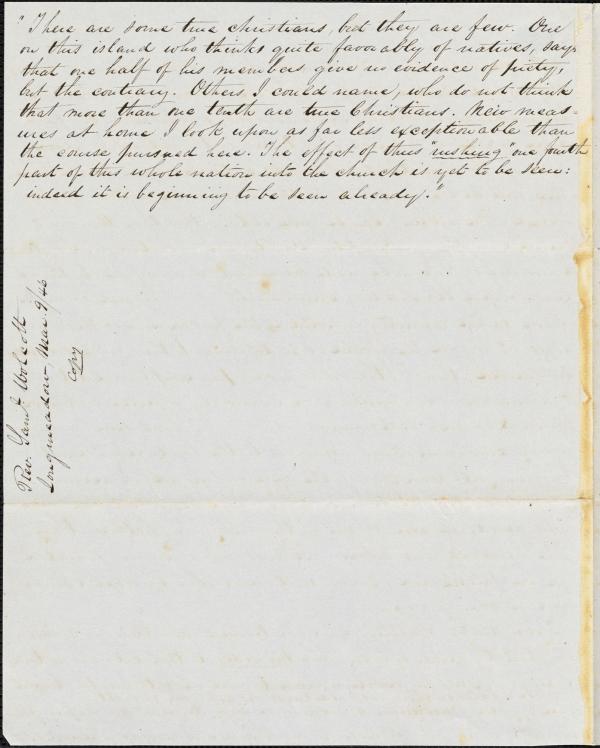 "There are some true christians, but they are few. One
on this island who thinks quite favorably of natives, says
that one half of his members give no evidence of piety,
but the contrary. Others I could name, who do not think
that more than one tenth are true Christians. New meas-
ures at home I look upon as far less exceptionable than
the course pursued here. The effect of thus "rushing" one fourth
part of this whole nation into the church is yet to be seen:
indeed it is beginning to be seen already."
Rev. Saml. Wolcott
Longmeadow, Mar. 9/46
Copy